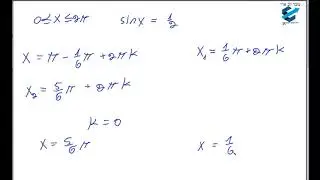 0≤x≤2π sinx = 1/2
x = π - 1/6 π + 2πk x₁ = 1/6 π + 2πk
x₂ = 5/6 π + 2πk
k = 0
x = 5/6 π x = 1/6